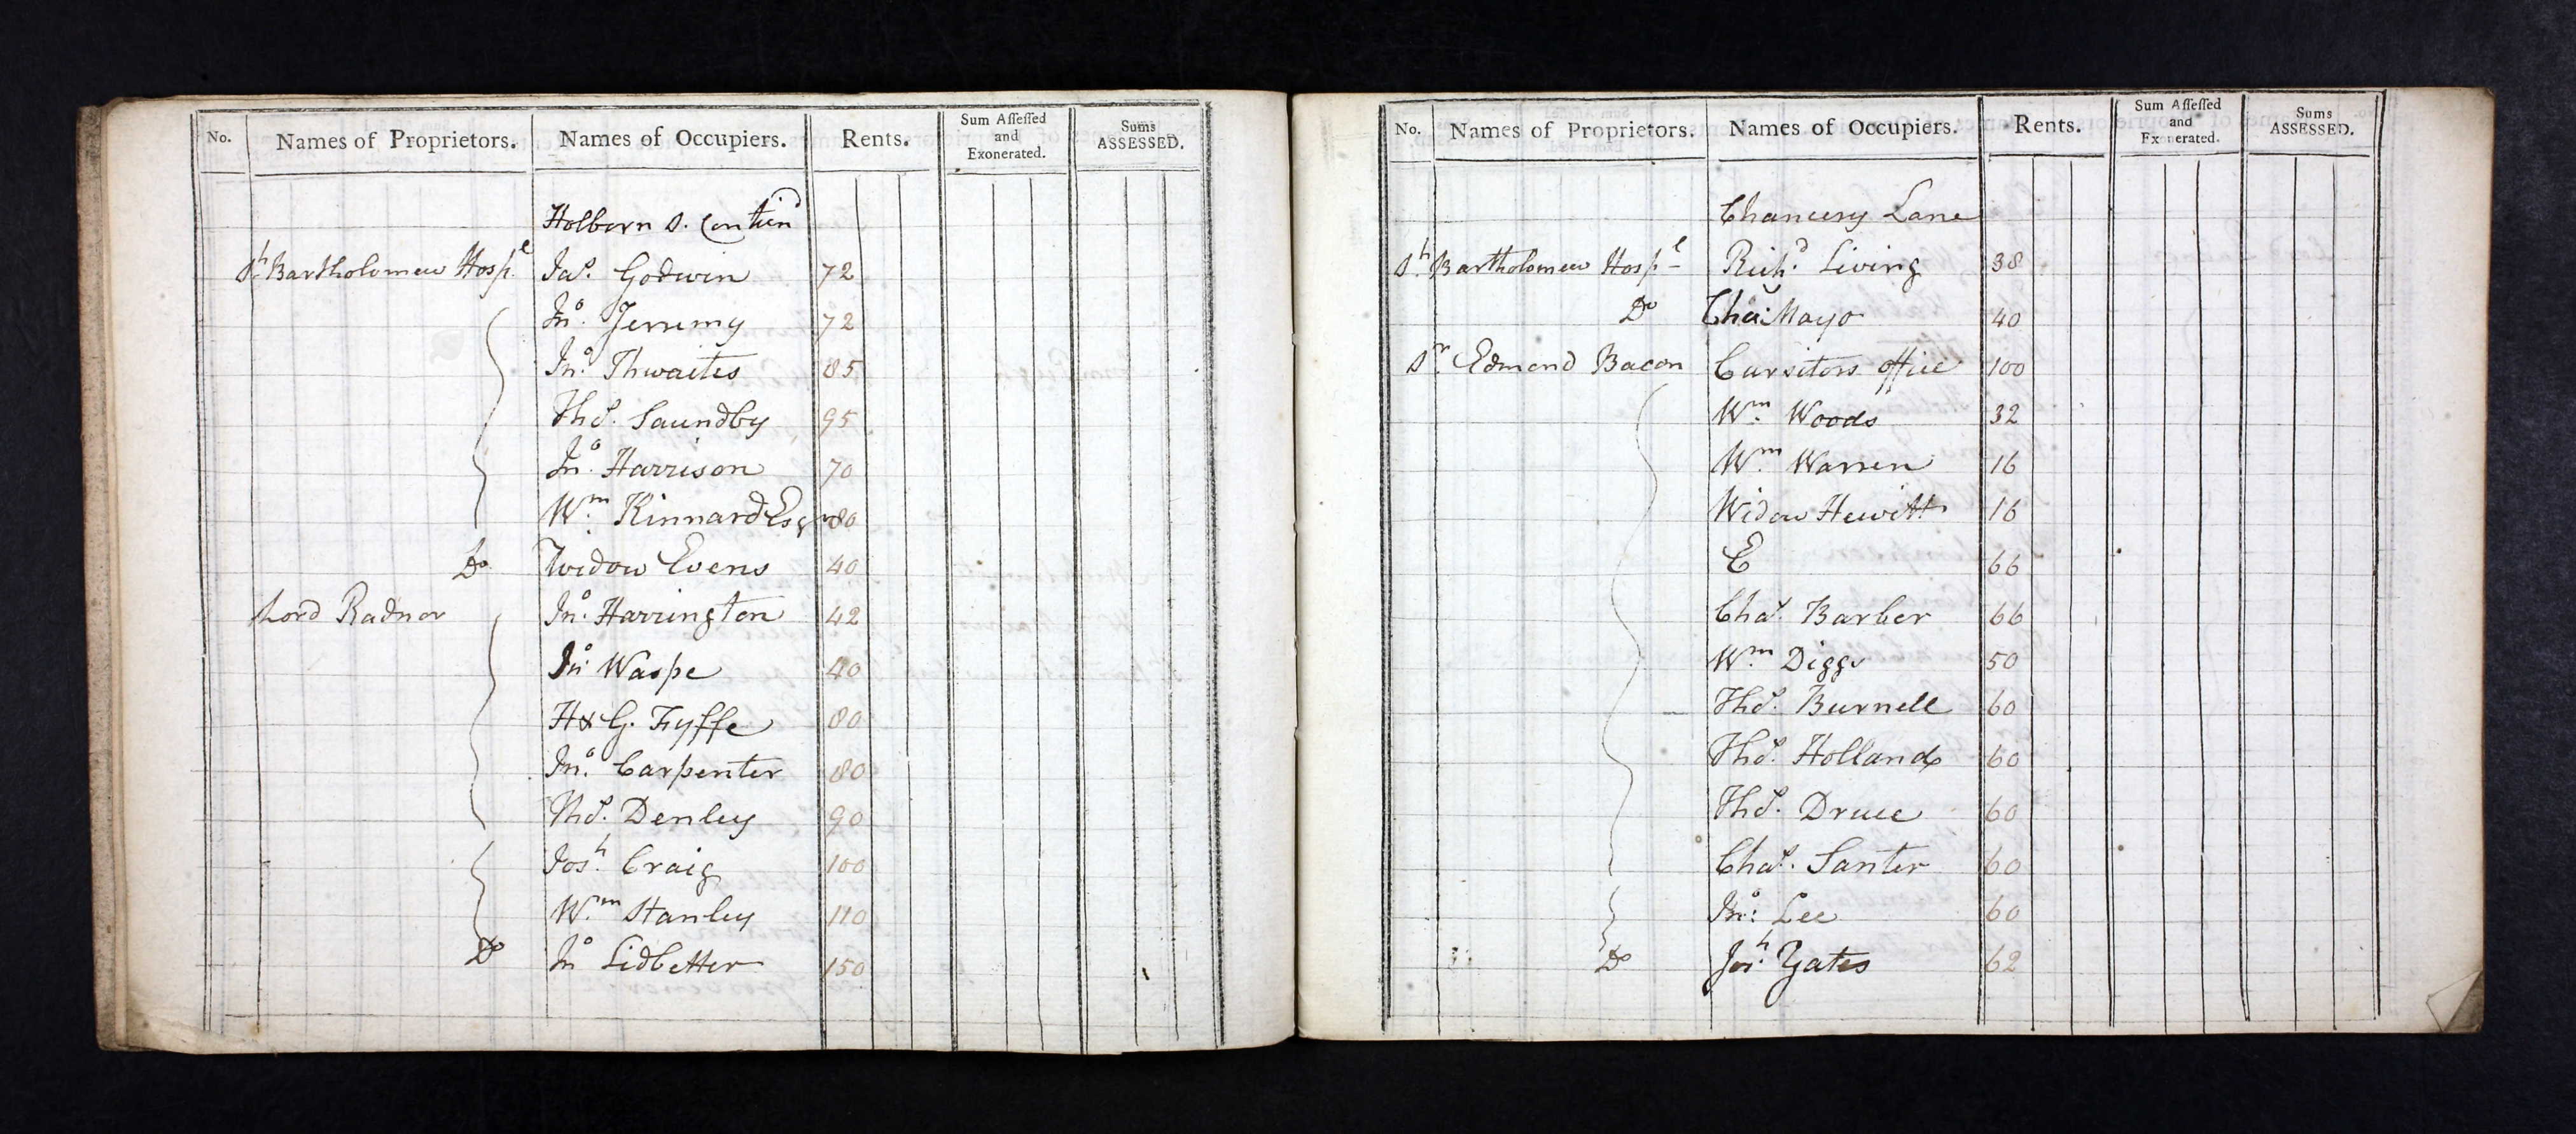 No. Names of Proprietors. Names of Occupiers. Rents. Sum Assessed and Exonerated. Sums ASSESSED.
Holborn S. Contin^d
S^t Bartholomew Hosp^l Ja^s. Godwin 72
Jn^o. Jerremy 72
Jn^o. Thwaites 85
Tho^s. Saundby 95
Jn^o. Harrison 70
W^m. Kinnard Esq^r 80
D^o Widow Evens 40
Lord Radnor Jn^o. Harrington 42
Jn^o Waspe 40
H & G. Fyffe 80
Jn^o. Carpenter 80
Tho^s. Denley 90
Jos^h. Craig 100
W^m. Stanley 110
D^o Jn^o Lidbetter 150
No. Names of Proprietors. Names of Occupiers. Rents. Sum Assessed and Exonerated. Sums ASSESSED.
Chancery Lane
S^t. Bartholomew Hosp^l Rich^d. Living 38
D^o Cha^s. Mayo 40
S^r. Edmond Bacon Cursitors office 100
W^m. Woods 32
W^m. Warren 16
Widow Hewitt 16
E 66
Cha^s. Barber 66
W^m. Diggs 50
Tho^s. Burnell 60
Tho^s. Holland 60
Tho^s. Druce 60
Cha^s. Santer 60
Jn^o: Lee 60
D^o Jos^h. Yates 62